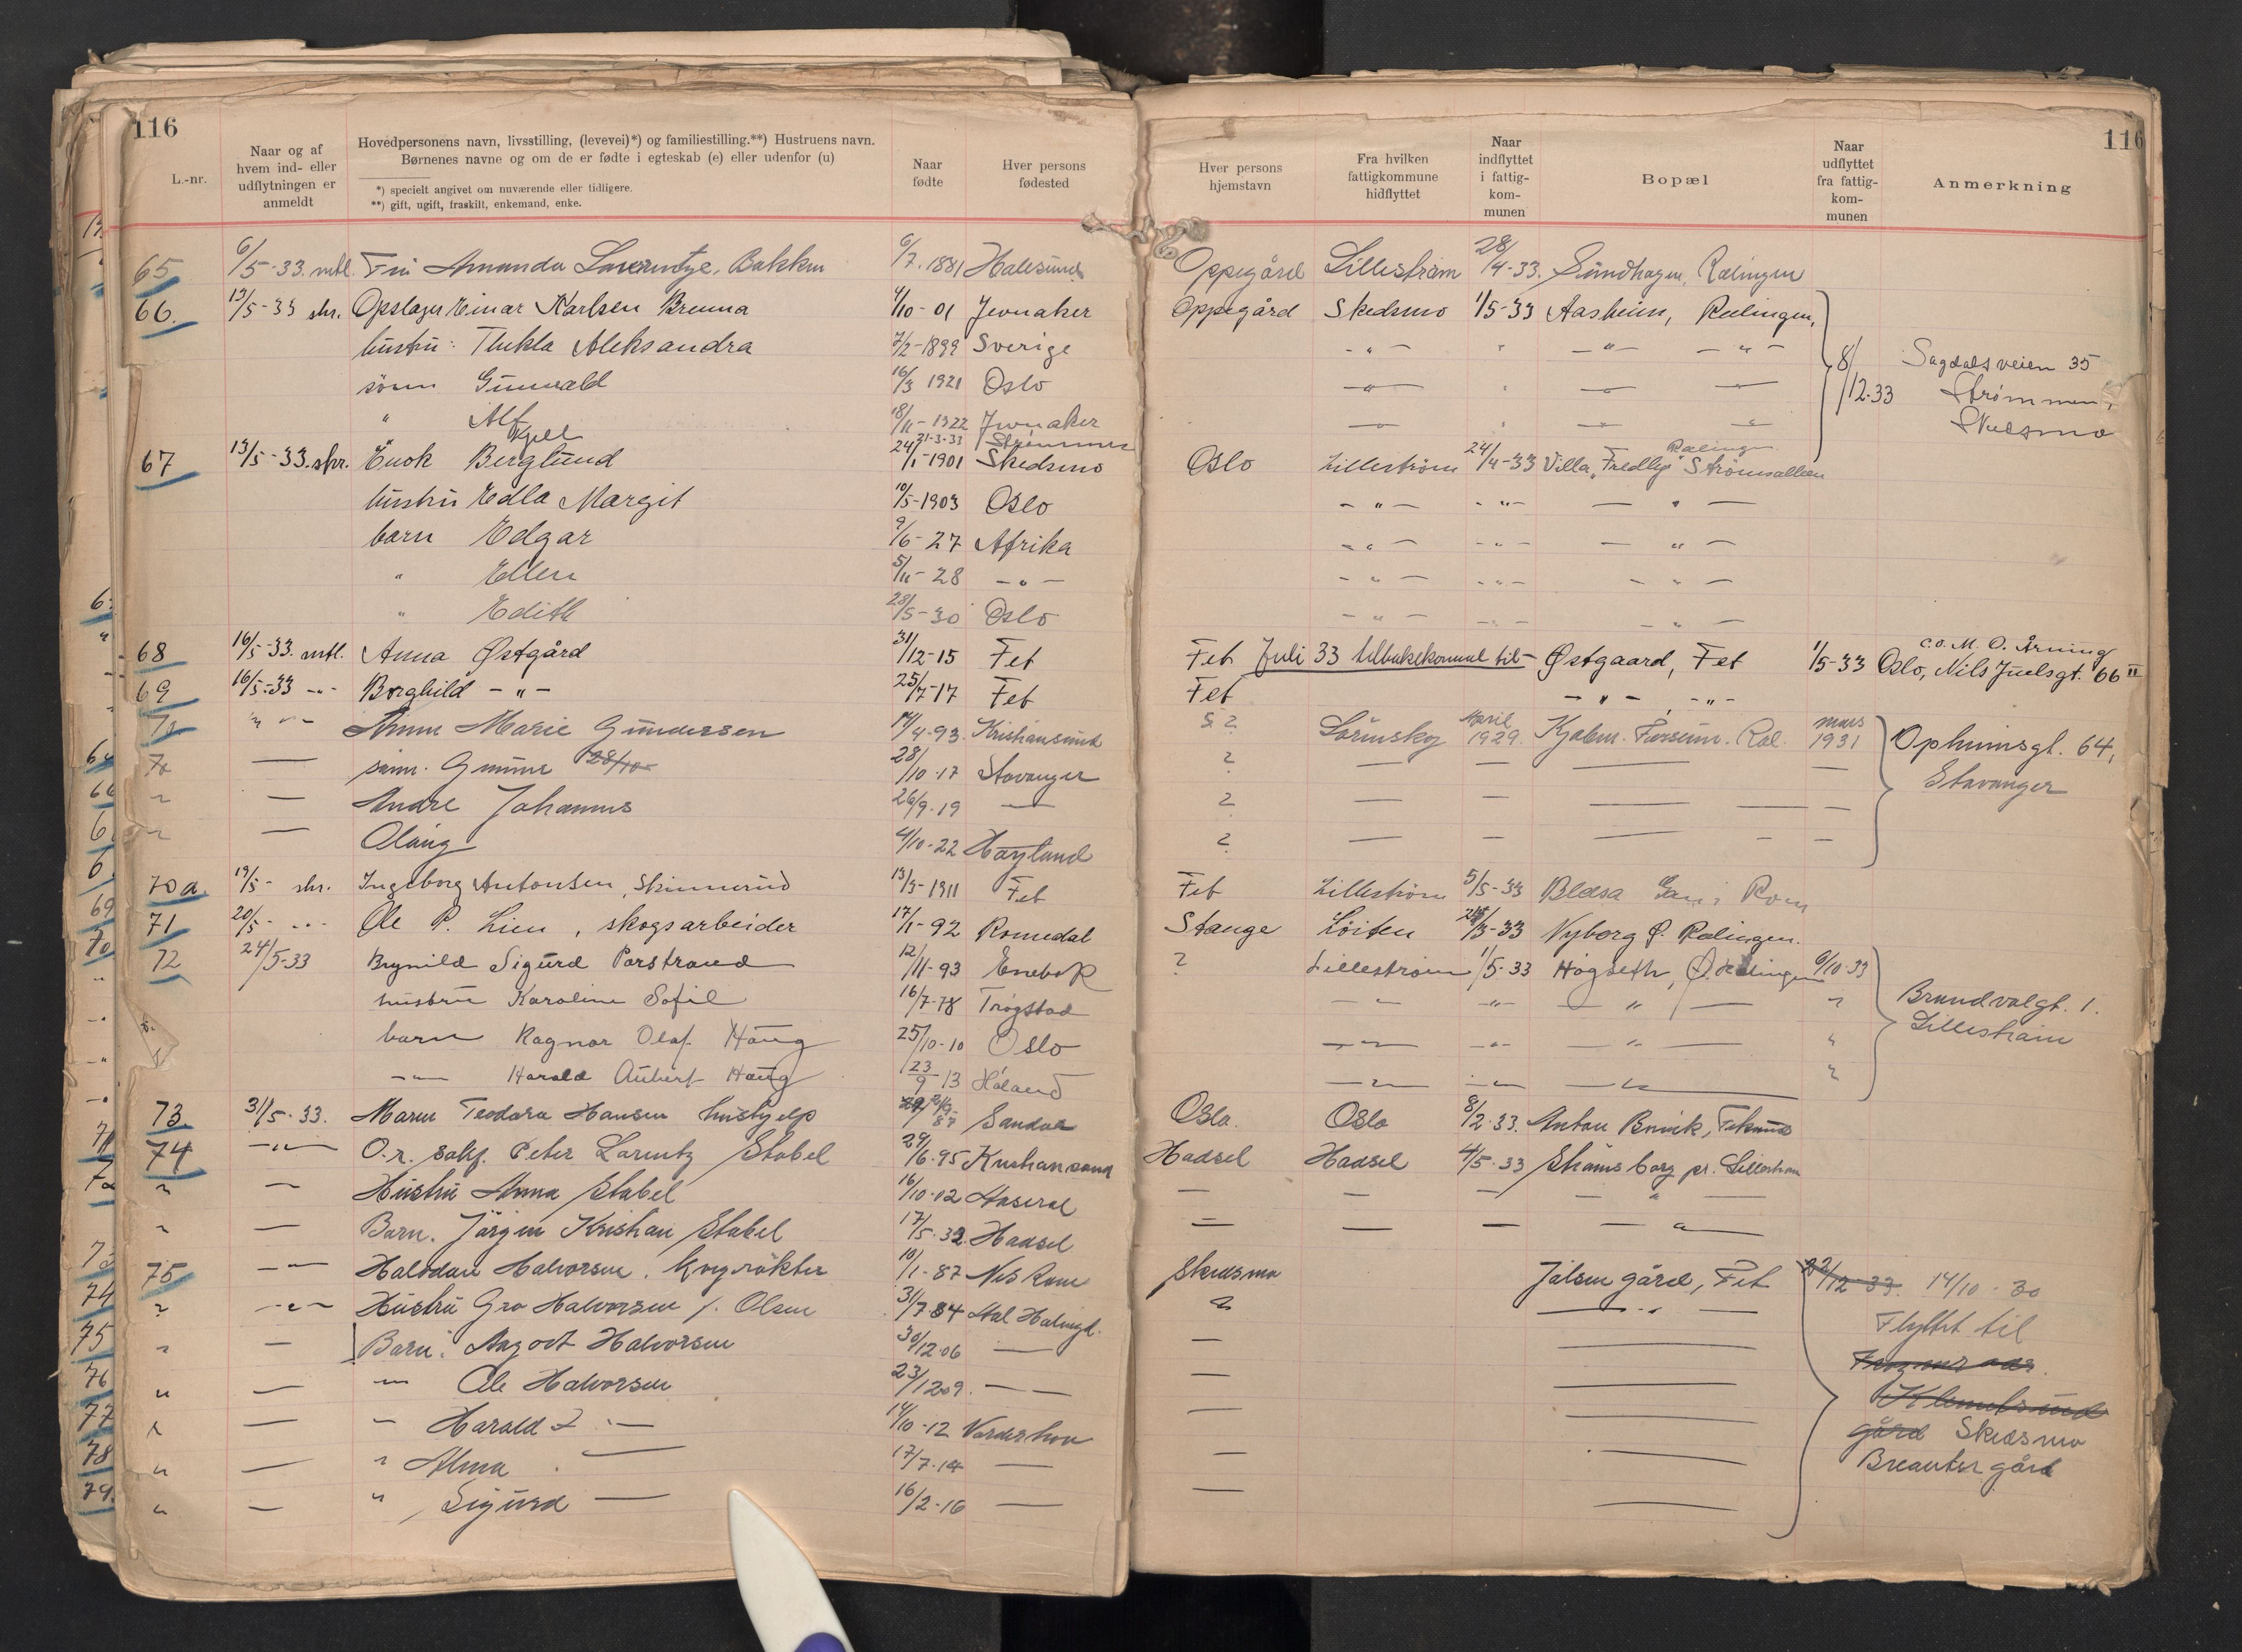 116
L.-nr.
Naar og af hvem ind- eller udflytningen er anmeldt
Hovedpersonens navn, livsstilling, (levevei)*) og familiestilling.**) Hustruens navn.
Børnenes navne og om de er fødte i egteskab (e) eller udenfor (u)
*) specielt angivet om nuværende eller tidligere.
**) gift, ugift, fraskilt, enkemand, enke.
Naar fødte
Hver persons fødested
Hver persons hjemstavn
Fra hvilken fattigkommune hidflyttet
Naar indflyttet i fattig-kom-munen
Bopæl
Naar udflyttet fra fattig-kom-munen
Anmerkning
116
65 6/5-33. mtl. Frk Amanda Bakken 6/7.1881 Halesund Oppegård Lillestrøm 28/4-33. Sundhagen, Rælingen
66. 13/5-33 skr. Opslager Einar Karlsen Brenna 4/10-01 Jevnaker Oppegård Skedsmo 1/5-33 Aasheim, Rælingen,
hustru: Thekla Aleksandra 7/2-1899 Sverige - " - " - " - - " -
sønn Gunvald 16/3 1921 Oslo 8/12.33 Sagdalsveien 35
" Alf 18/11-1922 Jevnaker Strømmen,
Kjell 21-3-33 Strømmen Skedsmo
67 13/5-33. skr. Enok Berglund 24/1-1901 Skedsmo Oslo Lillestrøm 24/4-33 Villa "Fredly" Strømsalleen Rælingen
hustru Edla Margit 10/5-1903 Oslo - " - - " - - " -
barn Edgar 9/6-27 Afrika - " - - " - - " -
" Ellen 5/11-28 - " - - " - - " - - " -
" Edith 28/5-30 Oslo - " - - " - - " -
68 16/5-33. mtl. Anna Østgård 31/12-15 Fet Fet Juli 33 tilbakekommet til- Østgaard, Fet 1/5-33 c.o. M. O. Årning
Oslo, Nils Juelsgt. 66 II
69 16/5-33 - " - Borghild - " - 25/7-17 Fet Fet - " - - " -
70 " - " - Anne Marie Gundersen 14/4-93. Kristiansund S? Lørenskog April 1929. Kjelm. Fursum. Ræl. mars 1931 64,
70 — sønn. Gunnar 28/10 28/10-17 Stavanger ? — — — — Stavanger
" — Andre Johannes 26/9.19 — ? — — — —
" — Olaug 4/10-22 Høyland ? — — — —
70 a. 19/5- skr. Ingeborg Antonsen, Skinnerud 13/3-1911 Fet Fet Lillestrøm 5/5-33 Blæsa
71 20/5- - " - Ole P. Lien, skogsarbeider 17/1-92 Romedal Stange Løiten 3-33 Nyborg Ø. Rælingen.
72 24/5-33 Brynild Sigurd Porstrand 12/11-93 Enebak ? Lillestrøm 1/5-33 Høgseth, Ø. Rælingen 9/10-33
hustru Karoline Sofie 16/7-78 Trøgstad - " - - " - - " - " Brandvalgt. 1.
barn Ragnar Olaf. Haug 25/10-10 Oslo - " - - " - - " - " Lillestrøm
- " - Harald Aubert Haug 23/9 13 Høland - " - - " - - " - "
73. 31/5-33. Maren Teodora Hansen hushjelp 87 Sandar Oslo. Oslo 8/2.33. Anton
74 - " - O.r. sakf. Peter Lorentz Stabel 29/6.95 Kristiansand Hadsel Hadsel 4/5.33 Strømsborg pr. Lillestrøm
" — Hustru Anna Stabel 16/10-02 Aaseral — — — - " -
" — Barn. Jørgen Kristian Stabel 17/5.32. Hadsel — — — - " -
75 - " - Halvdan Halvorsen. Kvegrøkter 10/1-87 Nes Rom Skedsmo Jølsen gård, Fet 22/12-33. 14/10-30
" - " - Hustru Gro Halvorsen f. Olsen 31/7 84 Aal Halingd. " - " - Flyttet til
" — Barn: Aagodt Halvorsen 30/12.06 — — —
" — " Ole Halvorsen 23/12 09. — — —
" — " Harald — 14/10-12 Norderhov — — gård Skedsmo
" — " Alma — 17/7-14 — — — Breauter gård
" — " Sigurd — 16/2-16 — — —